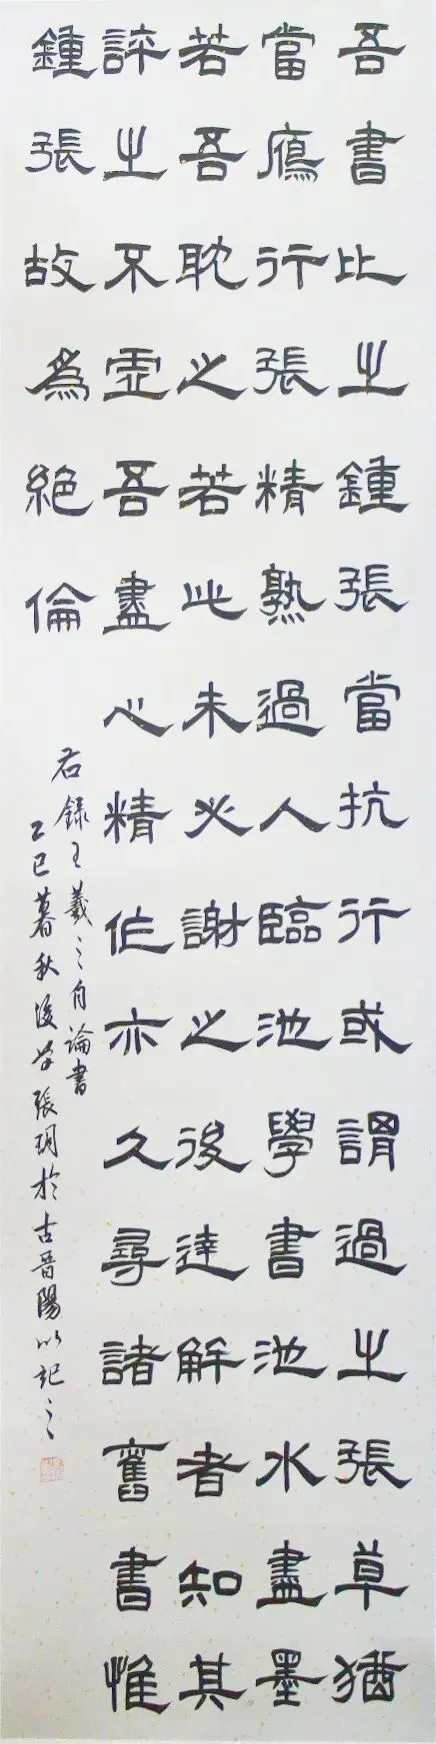 吾書比之鍾張當抗行或謂過之張草猶
當鴈行張精熟過人臨池學書池水盡墨
若吾耽之若此未必謝之後達解者知其
評之不虛吾盡心精作亦久尋諸舊書惟
鍾張故為絕倫
右錄王羲之自論書
乙巳暮秋後學張玥於古晉陽以記之